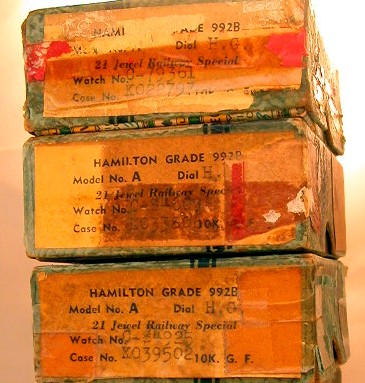 HAMI GRADE 992B
Dial H.G.
21 Jewel Railway Special
Watch No.
Case No. K022797
HAMILTON GRADE 992B
Model No. A Dial H.
21 Jewel Railway Spec
Watch No.
Case No. 10K.
HAMILTON GRADE 992B
Model No. A Dial H.G.
21 Jewel Railway Special
Watch No.
Case No. K039502 10K. G. F.